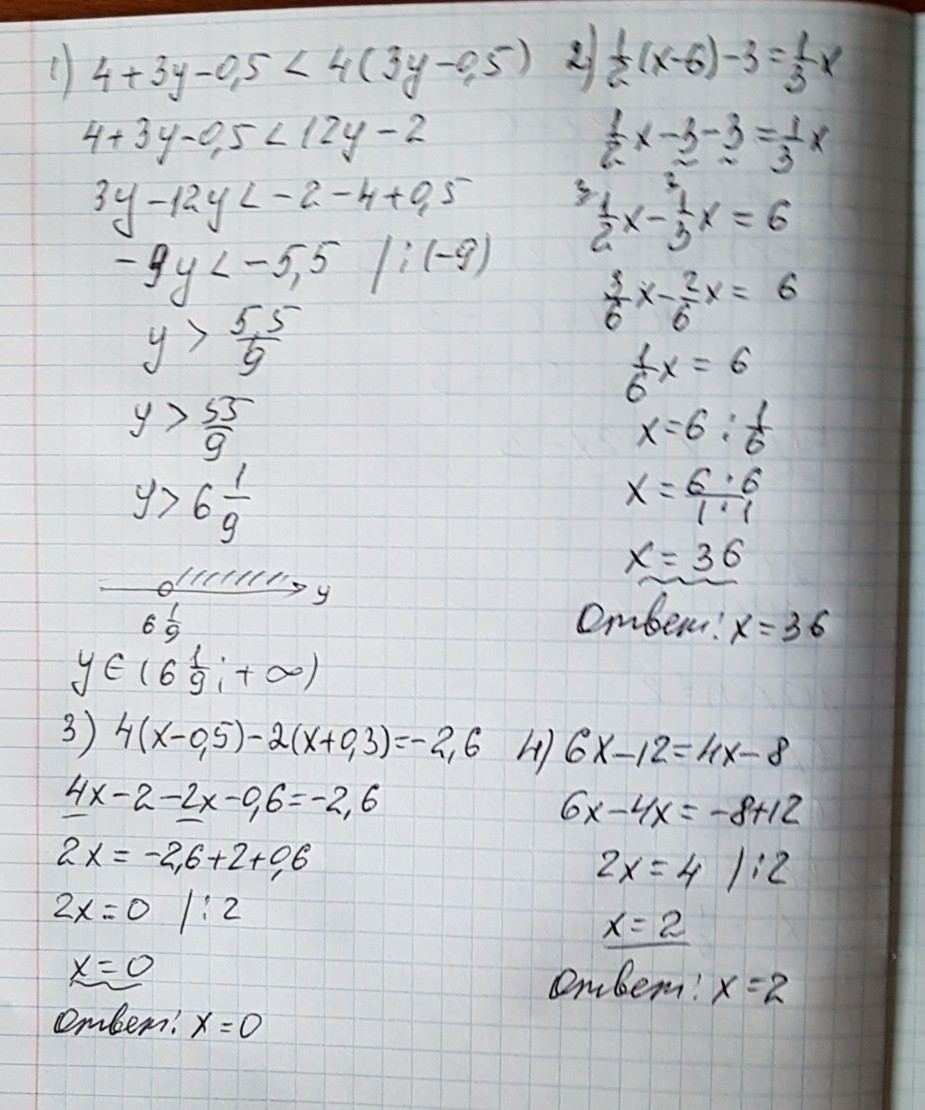 1) 4+3y-0,5 < 4(3y-0,5)
4+3y-0,5 < 12y-2
3y-12y < -2-4+0,5
-9y < -5,5 /:(-9)
y > 5,5/9
y > 55/9
y > 6 1/9
y
6 1/9
y ∈ (6 1/9; +∞)
2) 1/2(x-6)-3=1/3x
1/2x-3-3=1/3x
3 1/2x- 2 1/3x = 6
3/6x-2/6x = 6
1/6x = 6
x=6:1/6
x = 6·6/1·1
x = 36
Ответ: x=36
3) 4(x-0,5)-2(x+0,3)=-2,6
4x-2-2x-0,6=-2,6
2x=-2,6+2+0,6
2x=0 /:2
x=0
Ответ: x=0
4) 6x-12=4x-8
6x-4x=-8+12
2x=4 /:2
x=2
Ответ: x=2